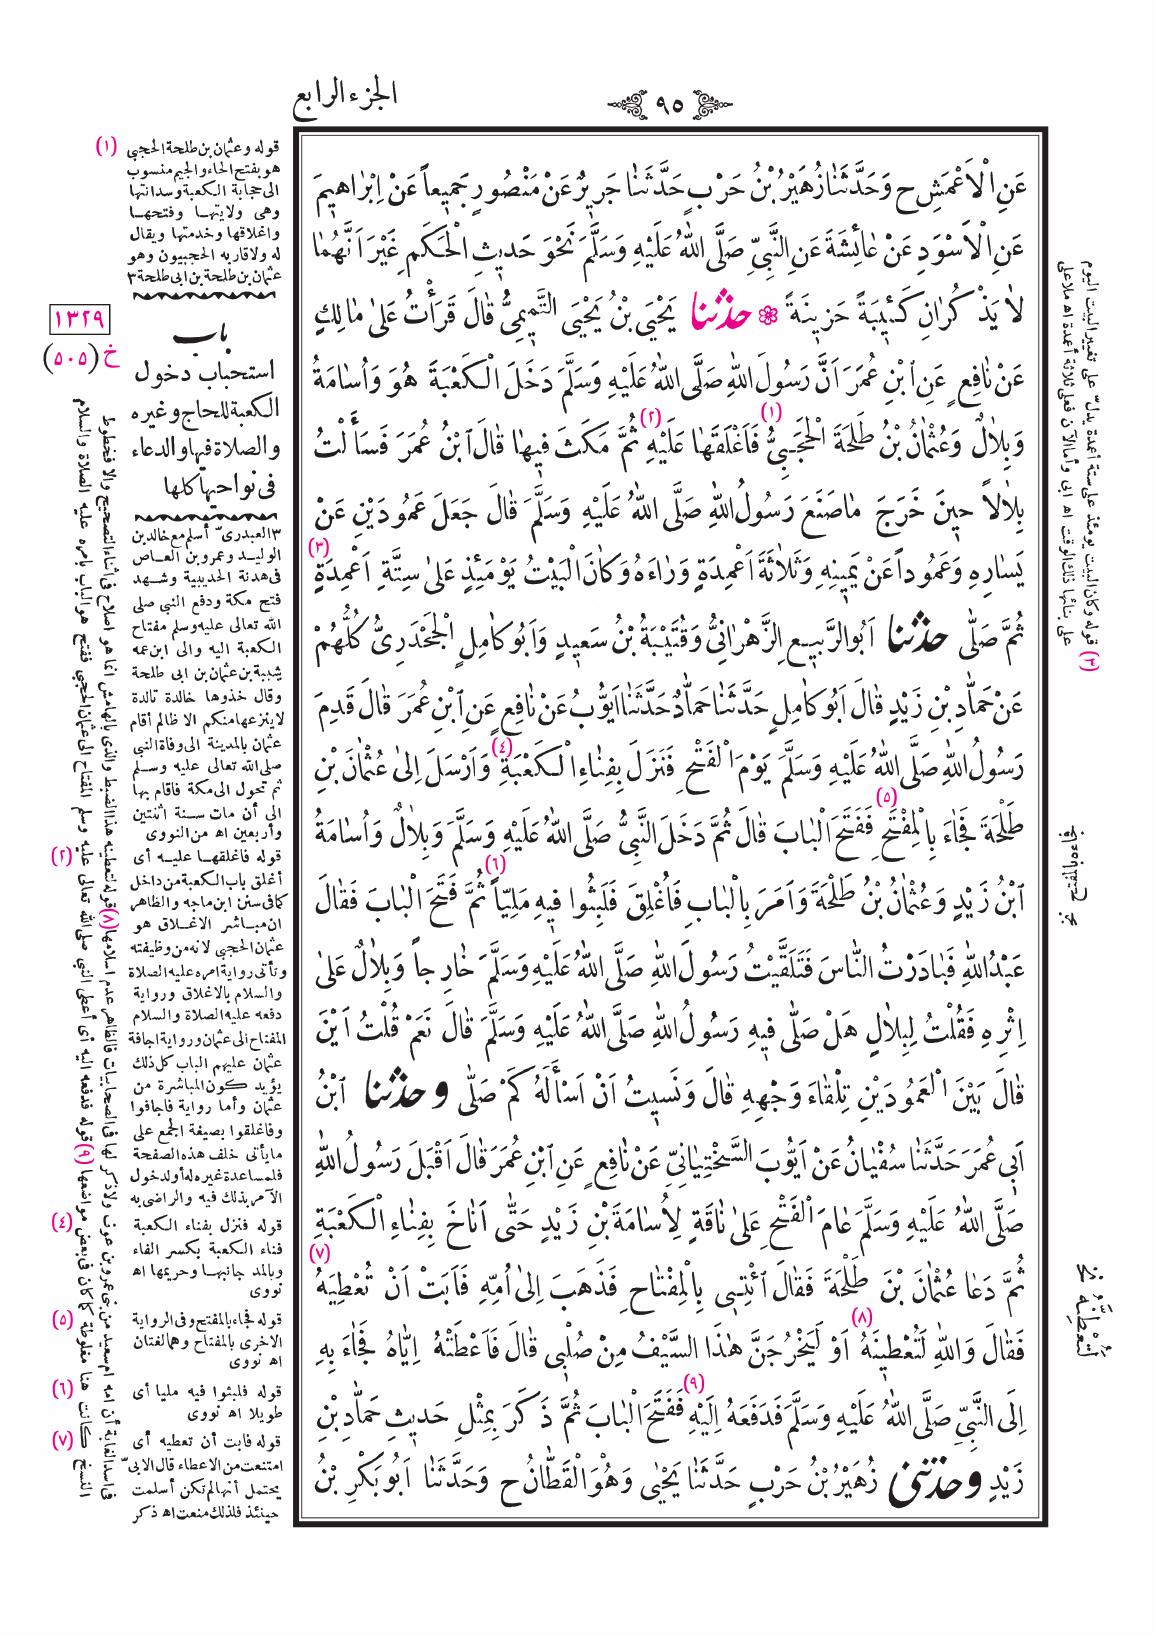 الجزء الرابع
٩٥
عَنِ الْاَعْمَشِ ح وَحَدَّثَنَا زُهَيْرُ بْنُ حَرْبٍ حَدَّثَنَا جَرِيرٌ عَنْ مَنْصُورٍ جَمِيعاً عَنْ اِبْرَاهِيمَ
عَنِ الْاَسْوَدِ عَنْ عَائِشَةَ عَنِ النَّبِىِّ صَلَّى اللهُ عَلَيْهِ وَسَلَّمَ نَحْوَ حَديثِ الْحَكَمِ غَيْرَ اَنَّهُمَا
لَا يَذْكُرَانِ كَئِيبَةً حَزِينَةً ۞ حدثنا يَحْيَى بْنُ يَحْيَى التَّمِيمِىُّ قَالَ قَرَأْتُ عَلَى مَالِكٍ
عَنْ نَافِعٍ عَنِ ابْنِ عُمَرَ اَنَّ رَسُولَ اللهِ صَلَّى اللهُ عَلَيْهِ وَسَلَّمَ دَخَلَ الْكَعْبَةَ هُوَ وَاُسَامَةُ
وَبِلَالٌ وَعُثْمَانُ بْنُ طَلْحَةَ الْحَجَبِىُّ (١) فَاَغْلَقَهَا عَلَيْهِ (٢) ثُمَّ مَكَثَ فِيهَا قَالَ ابْنُ عُمَرَ فَسَأَلْتُ
بِلَالاً حِينَ خَرَجَ مَا صَنَعَ رَسُولُ اللهِ صَلَّى اللهُ عَلَيْهِ وَسَلَّمَ قَالَ جَعَلَ عَمُودَيْنِ عَنْ
يَسَارِهِ وَعَمُوداً عَنْ يَمِينِهِ وَثَلَاثَةَ اَعْمِدَةٍ وَرَاءَهُ وَكَانَ الْبَيْتُ يَوْمَئِذٍ عَلَى سِتَّةِ اَعْمِدَةٍ (٣)
ثُمَّ صَلَّى حدثنا اَبُو الرَّبِيعِ الزَّهْرَانِىُّ وَقُتَيْبَةُ بْنُ سَعِيدٍ وَاَبُو كَامِلٍ الْجَحْدَرِىُّ كُلُّهُمْ
عَنْ حَمَّادِ بْنِ زَيْدٍ قَالَ اَبُو كَامِلٍ حَدَّثَنَا حَمَّادٌ حَدَّثَنَا اَيُّوبُ عَنْ نَافِعٍ عَنِ ابْنِ عُمَرَ قَالَ قَدِمَ
رَسُولُ اللهِ صَلَّى اللهُ عَلَيْهِ وَسَلَّمَ يَوْمَ الْفَتْحِ فَنَزَلَ بِفِنَاءِ الْكَعْبَةِ (٤) وَاَرْسَلَ اِلَى عُثْمَانَ بْنِ
طَلْحَةَ فَجَاءَ بِالْمِفْتَحِ (٥) فَفَتَحَ الْبَابَ قَالَ ثُمَّ دَخَلَ النَّبِىُّ صَلَّى اللهُ عَلَيْهِ وَسَلَّمَ وَبِلَالٌ وَاُسَامَةُ
ابْنُ زَيْدٍ وَعُثْمَانُ بْنُ طَلْحَةَ وَاَمَرَ بِالْبَابِ فَاُغْلِقَ فَلَبِثُوا فِيهِ مَلِيّاً (٦) ثُمَّ فَتَحَ الْبَابَ فَقَالَ
عَبْدُ اللهِ فَبَادَرْتُ النَّاسَ فَتَلَقَّيْتُ رَسُولَ اللهِ صَلَّى اللهُ عَلَيْهِ وَسَلَّمَ خَارِجاً وَبِلَالٌ عَلَى
اِثْرِهِ فَقُلْتُ لِبِلَالٍ هَلْ صَلَّى فِيهِ رَسُولُ اللهِ صَلَّى اللهُ عَلَيْهِ وَسَلَّمَ قَالَ نَعَمْ قُلْتُ اَيْنَ
قَالَ بَيْنَ الْعَمُودَيْنِ تِلْقَاءَ وَجْهِهِ قَالَ وَنَسِيتُ اَنْ اَسْأَلَهُ كَمْ صَلَّى و حدثنا ابْنُ
اَبِى عُمَرَ حَدَّثَنَا سُفْيَانُ عَنْ اَيُّوبَ السَّخْتِيَانِىِّ عَنْ نَافِعٍ عَنِ ابْنِ عُمَرَ قَالَ اَقْبَلَ رَسُولُ اللهِ
صَلَّى اللهُ عَلَيْهِ وَسَلَّمَ عَامَ الْفَتْحِ عَلَى نَاقَةٍ لِاُسَامَةَ بْنِ زَيْدٍ حَتَّى اَنَاخَ بِفِنَاءِ الْكَعْبَةِ
ثُمَّ دَعَا عُثْمَانَ بْنَ طَلْحَةَ فَقَالَ ائْتِنِى بِالْمِفْتَاحِ فَذَهَبَ اِلَى اُمِّهِ فَاَبَتْ اَنْ تُعْطِيَهُ (٧)
فَقَالَ وَاللهِ لَتُعْطِينَهُ (٨) اَوْ لَيَخْرُجَنَّ هٰذَا السَّيْفُ مِنْ صُلْبِى قَالَ فَاَعْطَتْهُ اِيَّاهُ فَجَاءَ بِهِ
اِلَى النَّبِىِّ صَلَّى اللهُ عَلَيْهِ وَسَلَّمَ فَدَفَعَهُ اِلَيْهِ (٩) فَفَتَحَ الْبَابَ ثُمَّ ذَكَرَ بِمِثْلِ حَديثِ حَمَّادِ بْنِ
زَيْدٍ و حدثنى زُهَيْرُ بْنُ حَرْبٍ حَدَّثَنَا يَحْيَى وَهُوَ الْقَطَّانُ ح وَحَدَّثَنَا اَبُو بَكْرِ بْنُ
(١) قوله وعثمان بن طلحة الحجبى
هو بفتح الحاء والجيم منسوب
الى حجابة الكعبة وسدانتها
وهى ولايتها وفتحها
واغلاقها وخدمتها ويقال
له ولاقاربه الحجبيون وهو
عثمان بن طلحة بن ابى طلحة ٣
١٣٢٩
خ (٥٠٥)
باب
استحباب دخول
الكعبة للحاج وغيره
والصلاة فيها والدعاء
فى نواحيها كلها
٣ العبدرىّ أسلم مع خالد بن
الوليد وعمرو بن العاص
فى هدنة الحديبية وشهد
فتح مكة ودفع النبى صلى
الله تعالى عليه وسلم مفتاح
الكعبة اليه والى ابن عمه
شيبة بن عثمان بن ابى طلحة
وقال خذوها خالدة تالدة
لا ينزعها منكم الا ظالم أقام
عثمان بالمدينة الى وفاة النبى
صلى الله تعالى عليه وسلم
ثم تحول الى مكة فاقام بها
الى أن مات سنة اثنتين
وأربعين اه من النووى
(٢) قوله فاغلقها عليه أى
أغلق باب الكعبة من داخل
كما فى سنن ابن ماجه والظاهر
ان مباشر الاغلاق هو
عثمان الحجبى لانه من وظيفته
وتأتى رواية امره عليه الصلاة
والسلام بالاغلاق ورواية
دفعه عليه الصلاة والسلام
المفتاح الى عثمان ورواية اجافة
عثمان عليهم الباب كل ذلك
يؤيد كون المباشرة من
عثمان وأما رواية فاجافوا
وفاغلقوا بصيغة الجمع على
ما يأتى خلف هذه الصفحة
فلمساعدة غيره له أو لدخول
الآمر بذلك فيه والراضى به
(٤) قوله فنزل بفناء الكعبة
فناء الكعبة بكسر الفاء
وبالمد جانبها وحريمها اه
نووى
(٥) قوله فجاء بالمفتح وفى الرواية
الاخرى بالمفتاح وهما لغتان
اه نووى
(٦) قوله فلبثوا فيه مليا أى
طويلا اه نووى
(٧) قوله فابت أن تعطيه أى
امتنعت من الاعطاء قال الابىّ
يحتمل أنها لم تكن أسلمت
حينئذ فلذلك منعت اه ذكر
(٣) قوله وكان البيت يومئذ على ستة أعمدة يدلّ على تغيير البيت اليوم
على بنائها ذلك الوقت اه ابى وأما الآن فعلى ثلاثة أعمدة اه ملا على
لَتُعْطِيَنَّهُ نخ